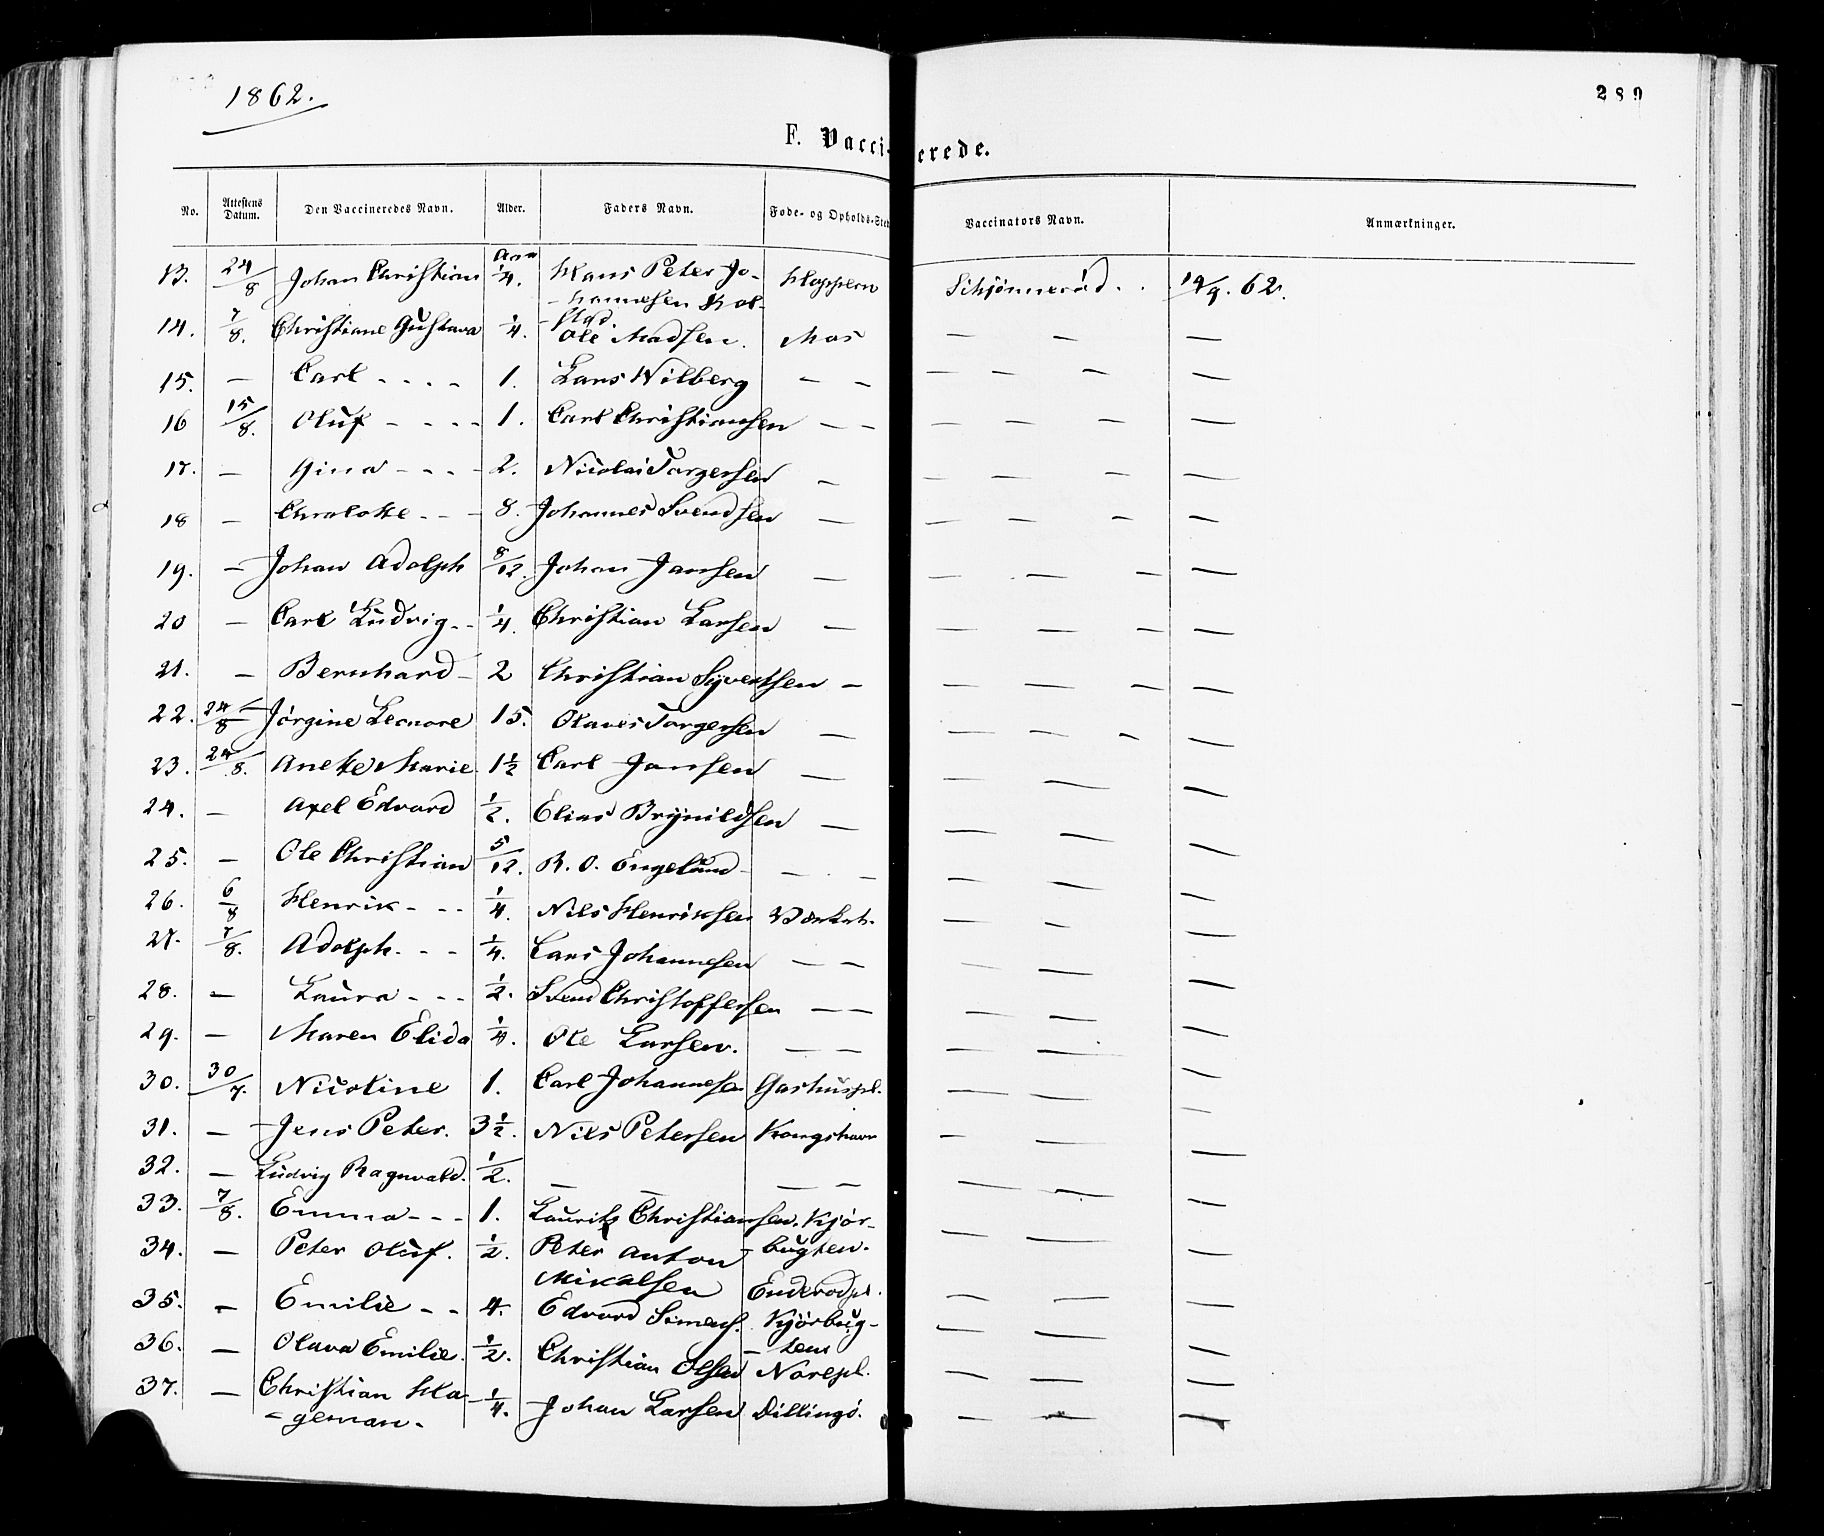 1862.
289
F. Vacci-erede.
No. Attestens Datum. Den Vaccineredes Navn. Alder. Faders Navn. Føde- og Opholds-Sted Vaccinators Navn. Anmærkninger.
13. 24/8 Johan Christian 1/4. Hans Peter Jo- Schjønnerød. 62.
-hannesen Kol-
-stad.
14. 7/8. Christiane Gustava 1/4. Ole Madsen. Mos — — —
15. — Carl - - - - 1. Lars Wilberg — — — — — —
16 15/8. Oluf - - - - 1. Carl Christiansen — — — — — —
17. — Gina - - - - 2. Nicolai Torgersen — — — — —
18 — - - - 8. Johannes Svendsen — — — — —
19. — Johan Adolph 8/12. Johan Jansen — — — — —
20 — Carl Ludvig - - 1/4. Christian Larsen — — — — —
21. — Bernhard - 2 Christian Syvertsen — — — — —
22. 24/8 Jørgine Leonore 15. Olaves Torgersen — — — — —
23. 24/8. Anette Marie 1 1/2 Carl Jansen — — — —
24. — Axel Edvard 1/2. Elias Brynildsen — — — —
25. — Ole Christian 5/12. R. O. Engelund - — — — — —
26. 6/8 Henrik - - - 1/4. Nils Henriksen — — —
27. 7/8. Adolph. - - - 1/4. Lars Johannesen — — — — —
28. — Laura - - - 1/2. Svend Christoffersen — — — — —
29. — Maren Elida 1/4. Ole Larsen. — — — — —
30. 30/7. Nicoline 1. Carl Johannesen Gashuspl. — — —
31. — Jens Peter. 3 1/2. Nils Petersen Kongshavn — —
32. — Ludvig Ragnvald. 1/2. — — — — — — —
33. 7/8. Emma - - - 1. Laurits Christiansen. Kjør-
34. — Peter Oluf. 1/2. Peter Anton -bugten.
Mikalsen Enderødpl.
35. - Emilie - - 4. Edvard Simens. Kjørbug-
-ten
36. — Olava Emilie. 1/2. Christian Olsen Norepl.
37. — Christian Ha- 1/4. Johan Larsen Dillingø.
-geman.